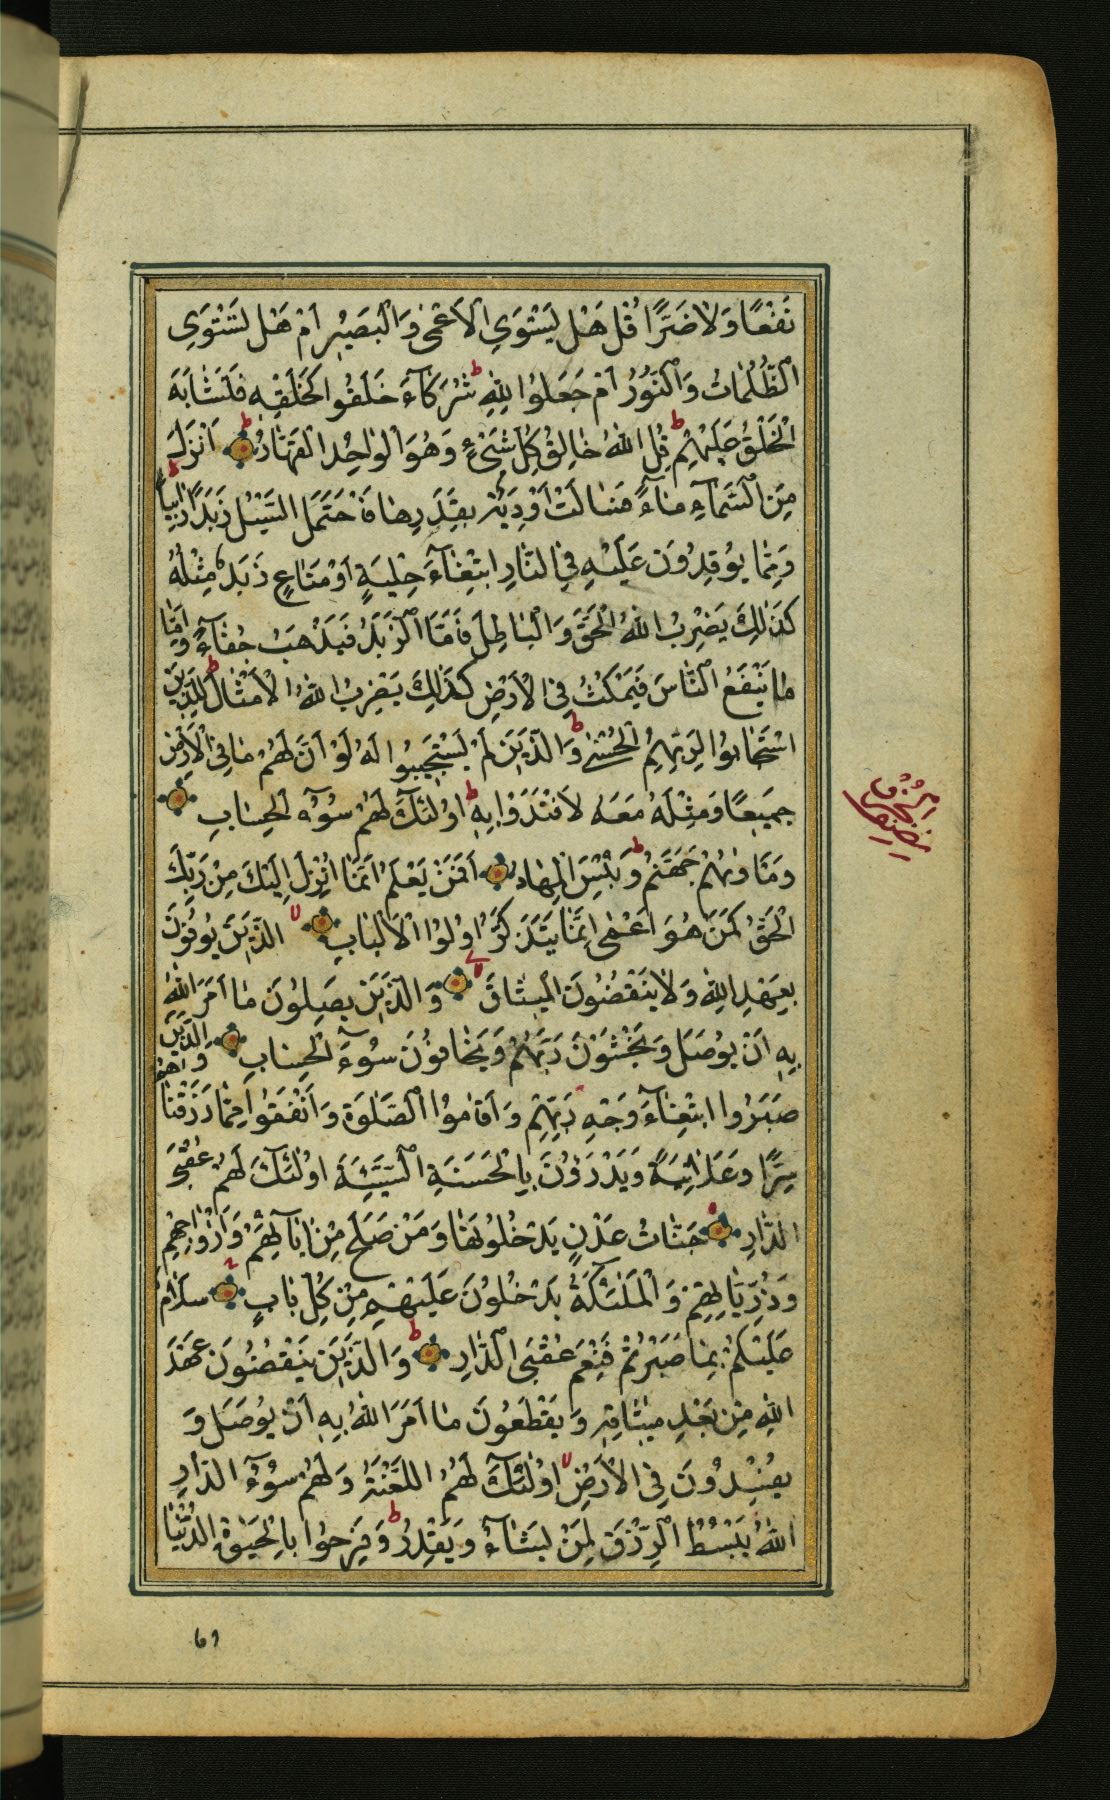 نَفْعًا وَلَا ضَرًّا قُلْ هَلْ يَسْتَوِي الْاَعْمٰى وَالْبَصِيرُ اَمْ هَلْ تَسْتَوِي
الظُّلُمَاتُ وَالنُّورُ اَمْ جَعَلُوا لِلّٰهِ شُرَكَآءَ خَلَقُوا كَخَلْقِهِ فَتَشَابَهَ
الْخَلْقُ عَلَيْهِمْ قُلِ اللّٰهُ خَالِقُ كُلِّ شَيْءٍ وَهُوَ الْوَاحِدُ الْقَهَّارُ اَنْزَلَ
مِنَ السَّمَآءِ مَآءً فَسَالَتْ اَوْدِيَةٌ بِقَدَرِهَا فَاحْتَمَلَ السَّيْلُ زَبَدًا رَابِيًا
وَمِمَّا يُوقِدُونَ عَلَيْهِ فِي النَّارِ ابْتِغَآءَ حِلْيَةٍ اَوْ مَتَاعٍ زَبَدٌ مِثْلُهُ
كَذٰلِكَ يَضْرِبُ اللّٰهُ الْحَقَّ وَالْبَاطِلَ فَاَمَّا الزَّبَدُ فَيَذْهَبُ جُفَآءً وَاَمَّا
مَا يَنْفَعُ النَّاسَ فَيَمْكُثُ فِي الْاَرْضِ كَذٰلِكَ يَضْرِبُ اللّٰهُ الْاَمْثَالَ لِلَّذِينَ
اسْتَجَابُوا لِرَبِّهِمُ الْحُسْنٰى وَالَّذِينَ لَمْ يَسْتَجِيبُوا لَهُ لَوْ اَنَّ لَهُمْ مَا فِي الْاَرْضِ
جَمِيعًا وَمِثْلَهُ مَعَهُ لَافْتَدَوْا بِهِ اُولٰٓئِكَ لَهُمْ سُوٓءُ الْحِسَابِ
وَمَأْوٰيهُمْ جَهَنَّمُ وَبِئْسَ الْمِهَادُ اَفَمَنْ يَعْلَمُ اَنَّمَا اُنْزِلَ اِلَيْكَ مِنْ رَبِّكَ
الْحَقُّ كَمَنْ هُوَ اَعْمٰى اِنَّمَا يَتَذَكَّرُ اُولُوا الْاَلْبَابِ الَّذِينَ يُوفُونَ
بِعَهْدِ اللّٰهِ وَلَا يَنْقُضُونَ الْمِيثَاقَ وَالَّذِينَ يَصِلُونَ مَا اَمَرَ اللّٰهُ
بِهِ اَنْ يُوصَلَ وَيَخْشَوْنَ رَبَّهُمْ وَيَخَافُونَ سُوٓءَ الْحِسَابِ وَالَّذِينَ
صَبَرُوا ابْتِغَآءَ وَجْهِ رَبِّهِمْ وَاَقَامُوا الصَّلٰوةَ وَاَنْفَقُوا مِمَّا رَزَقْنَاهُمْ
سِرًّا وَعَلَانِيَةً وَيَدْرَؤُنَ بِالْحَسَنَةِ السَّيِّئَةَ اُولٰٓئِكَ لَهُمْ عُقْبَى
الدَّارِ جَنَّاتُ عَدْنٍ يَدْخُلُونَهَا وَمَنْ صَلَحَ مِنْ اٰبَآئِهِمْ وَاَزْوَاجِهِمْ
وَذُرِّيَّاتِهِمْ وَالْمَلٰٓئِكَةُ يَدْخُلُونَ عَلَيْهِمْ مِنْ كُلِّ بَابٍ سَلَامٌ
عَلَيْكُمْ بِمَا صَبَرْتُمْ فَنِعْمَ عُقْبَى الدَّارِ وَالَّذِينَ يَنْقُضُونَ عَهْدَ
اللّٰهِ مِنْ بَعْدِ مِيثَاقِهِ وَيَقْطَعُونَ مَا اَمَرَ اللّٰهُ بِهِ اَنْ يُوصَلَ وَ
يُفْسِدُونَ فِي الْاَرْضِ اُولٰٓئِكَ لَهُمُ اللَّعْنَةُ وَلَهُمْ سُوٓءُ الدَّارِ
اللّٰهُ يَبْسُطُ الرِّزْقَ لِمَنْ يَشَآءُ وَيَقْدِرُ وَفَرِحُوا بِالْحَيٰوةِ الدُّنْيَا